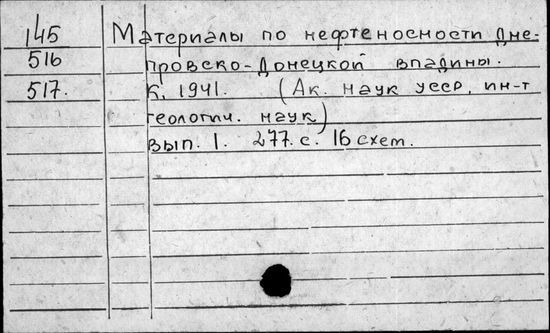 145 Материалы по нефтеносности Дне-
516 провско-Донецкой впадины.
517. К, 1941. (Ак. наук УССР, ин-т
геологич. наук)
Вып. 1. 277. с. 16 схем.